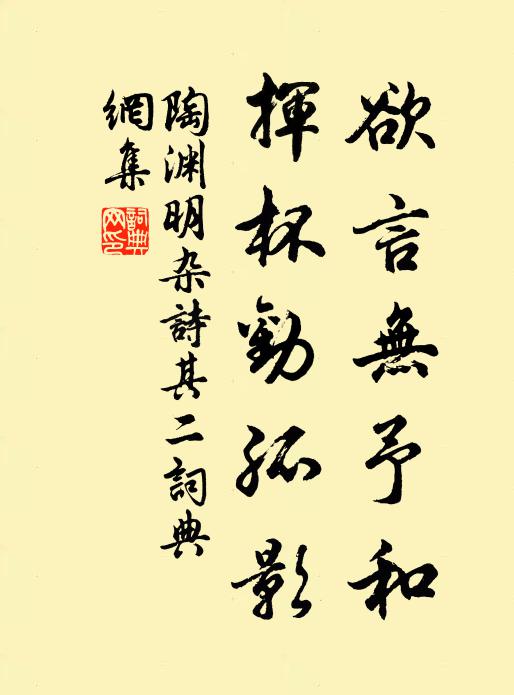 欲言無予和
揮杯勸孤影
陶渊明杂詩其二詞典
網集
詞典网印